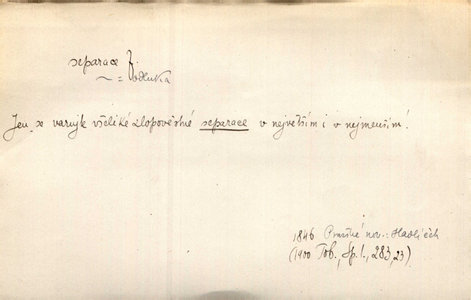 separace f.
~ = odluka
Jen se varujte všeliké zlopověstné separace v největším i v nejmenším!
1846 Pražské nov.: Hadlíček
(1900 Tob., Sp. 1., 283,23)